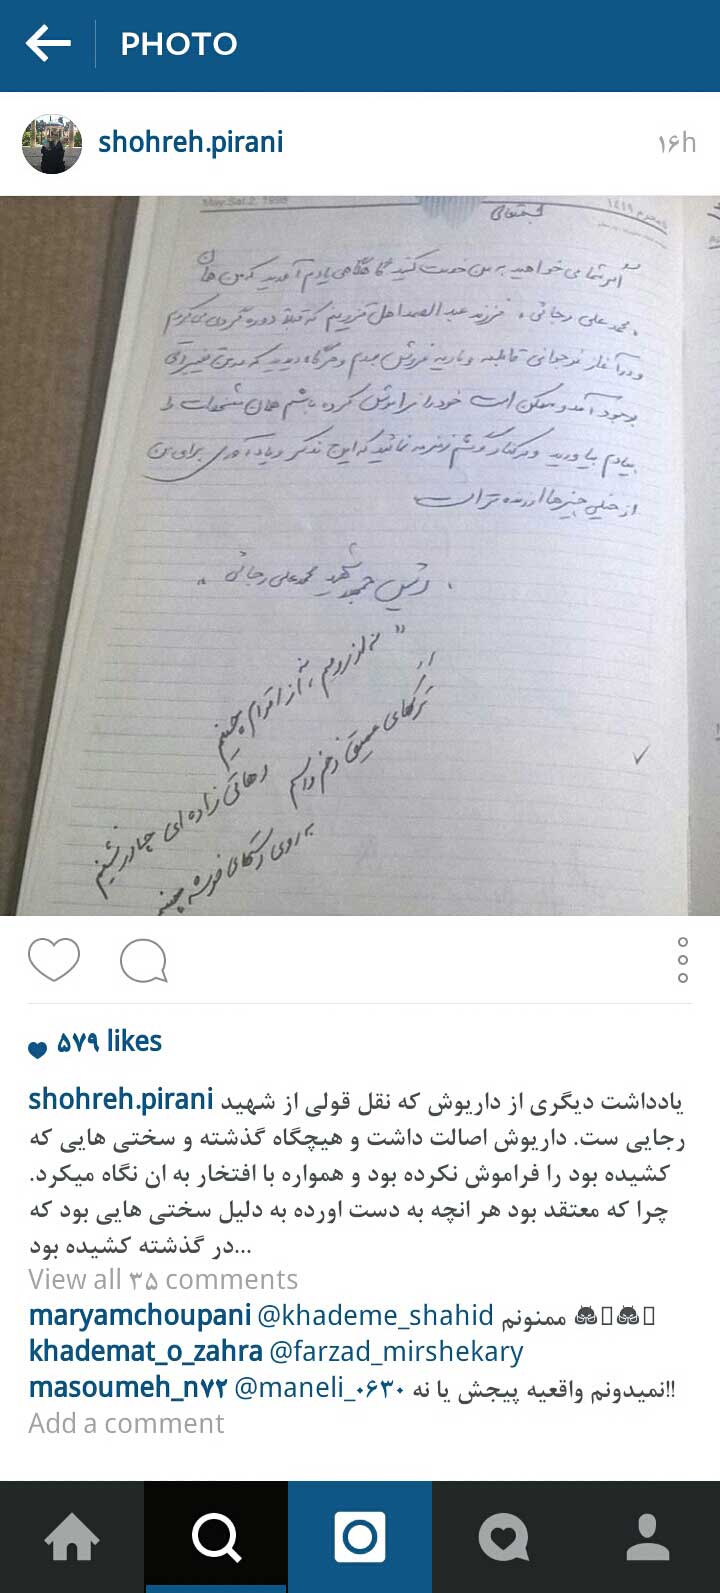 PHOTO
shohreh.pirani
۱۶h
May.Sat.2, 1998
اگر شما می خواهید به من خدمت کنید گاهگاهی یادم آورید که من همان
محمد علی رجائی فرزند عبدالصمد اهل قزوینم که قبلاً دوره گردی می کردم
و در آغاز نوجوانی قابلمه و بادیه فروش بودم و هرگاه دیدید که در من تغییراتی
بوجود آمده و ممکن است خود را فراموش کرده باشم همان مشخصات را
بیادم بیاورید و در کنار گوشم زمزمه نمائید که این تذکر و یادآوری برای من
از خیلی چیزها ارزنده تر است
رئیس جمهور شهید محمد علی رجائی
" نه از رومم، نه از اقوام چینم
ترکهای عمیق زخم دارم
دهاتی زاده ای چادرنشینم
به روی دستهای خوشه چینم
۵۷۹ likes
shohreh.pirani یادداشت دیگری از داریوش که نقل قولی از شهید
رجایی ست. داریوش اصالت داشت و هیچگاه گذشته و سختی هایی که
کشیده بود را فراموش نکرده بود و همواره با افتخار به ان نگاه میکرد.
چرا که معتقد بود هر انچه به دست اورده به دلیل سختی هایی بود که
در گذشته کشیده بود...
View all ۳۵ comments
maryamchoupani @khademe_shahid ممنونم
khademat_o_zahra @farzad_mirshekary
masoumeh_n۷۲ @maneli_۰۶۳۰ نمیدونم واقعیه پیجش یا نه!!
Add a comment